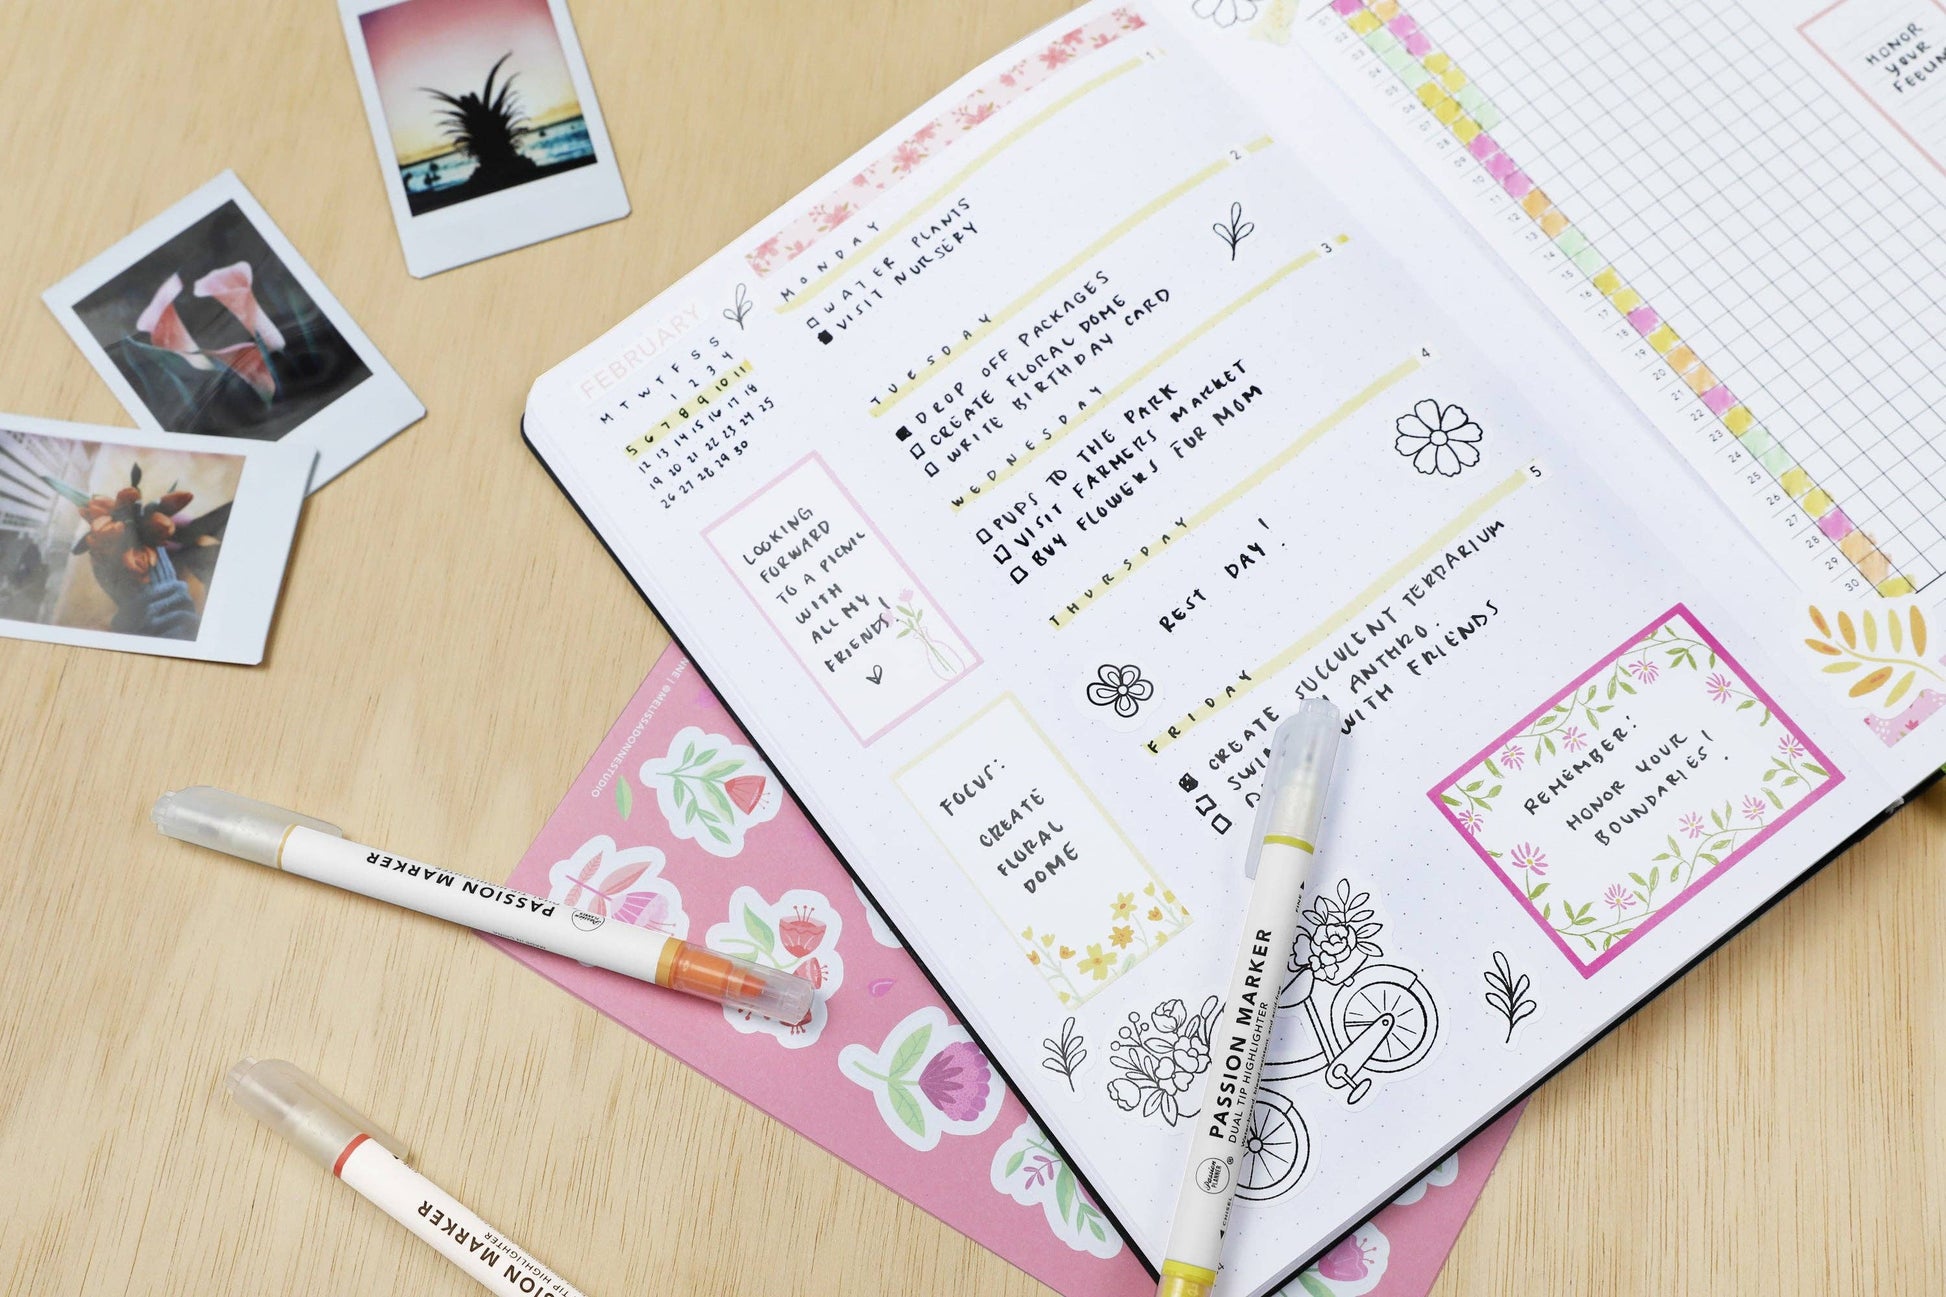 FEBRUARY
M T W T F S S
1 2 3 4
5 6 7 8 9 10 11
12 13 14 15 16 17 18
19 20 21 22 23 24 25
26 27 28 29 30
LOOKING
FORWARD
TO A PICNIC
WITH
ALL MY
FRIENDS!
FOCUS:
CREATE
FLORAL
DOME
MONDAY 1
WATER PLANTS
VISIT NURSERY
TUESDAY 2
DROP OFF PACKAGES
CREATE FLORAL DOME
WRITE BIRTHDAY CARD
WEDNESDAY 3
PUPS TO THE PARK
VISIT FARMERS MARKET
BUY FLOWERS FUR MOM
THURSDAY 4
REST DAY!
FRIDAY 5
CREATE SUCCULENT TERRARIUM
ANTHRO.
WITH FRIENDS
REMEMBER:
HONOR YOUR
BOUNDARIES!
01
02
03
04
05
06
07
08
09
10
11
12
13
14
15
16
17
18
19
20
21
22
23
24
25
26
27
28
29
30
HONOR
YOUR
@MELISSADONNESTUDIO
PASSION MARKER
PASSION MARKER
DUAL TIP HIGHLIGHTER
Passion
PLANNER
CHISEL
MARKER
TIP HIGHLIGHTER